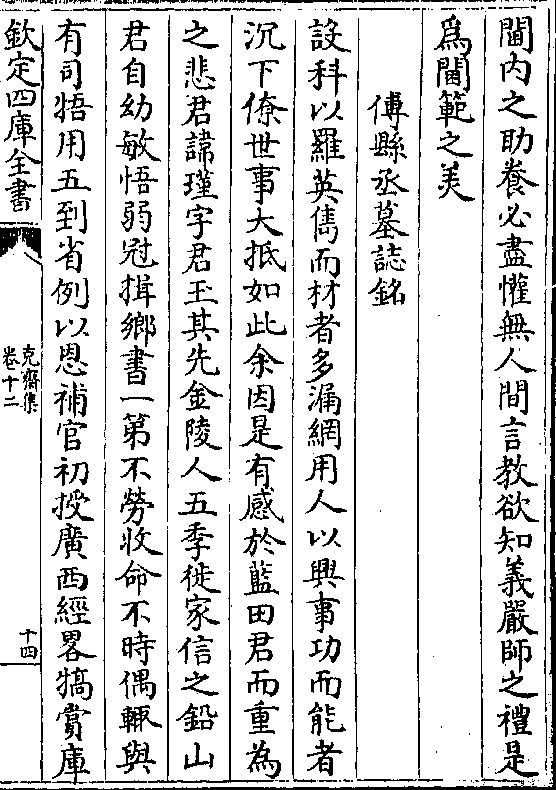 閫内之助養必盡懽無人間言教欲知義嚴師之禮是
爲閫範之美
傅縣丞墓誌銘
設科以羅英雋而材者多漏網用人以興事功而能者
沉下僚世事大抵如此余因是有感於藍田君而重為
之悲君諱瑾字君玉其先金陵人五季徙家信之鉛山
君自幼敏悟弱冠揖鄉書一第不勞收命不時偶輒與
有司牾用五到省例以恩補官初授廣西經畧犒賞庫
欽定四庫全書
克齋集
卷十二
十四